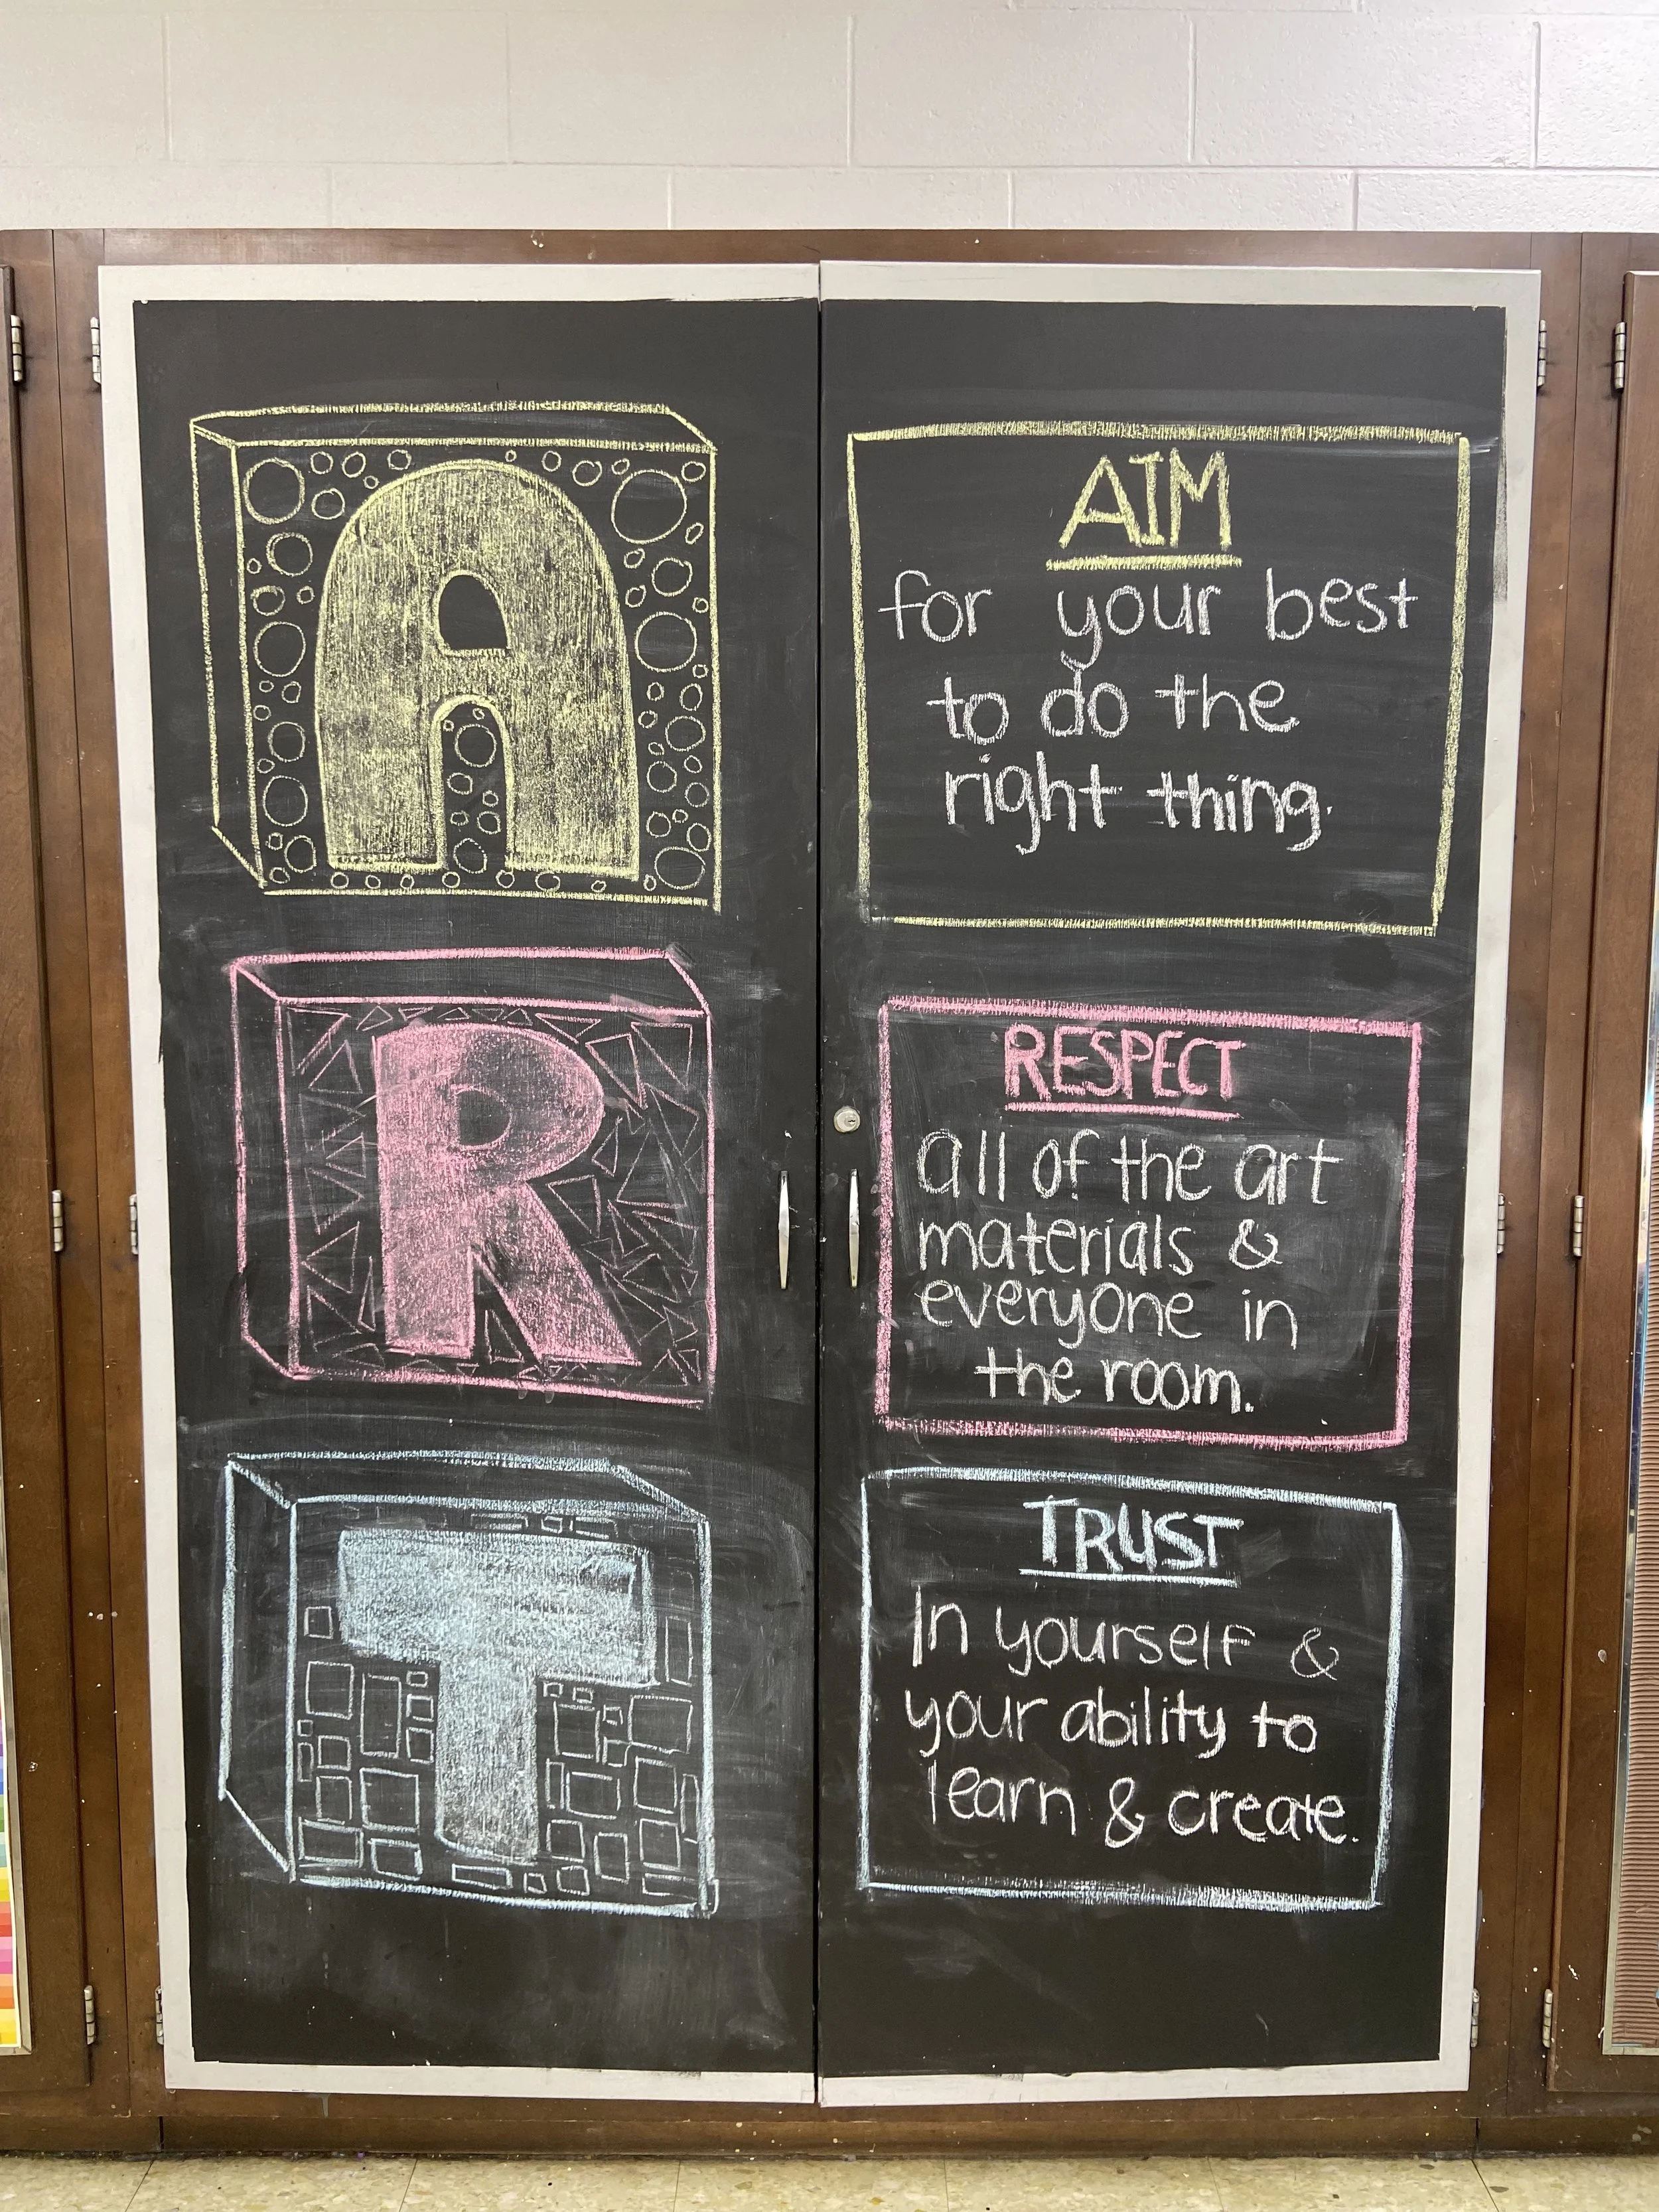 A
AIM
for your best
to do the
right thing.
R
RESPECT
all of the art
materials &
everyone in
the room.
T
TRUST
In yourself &
your ability to
learn & create.